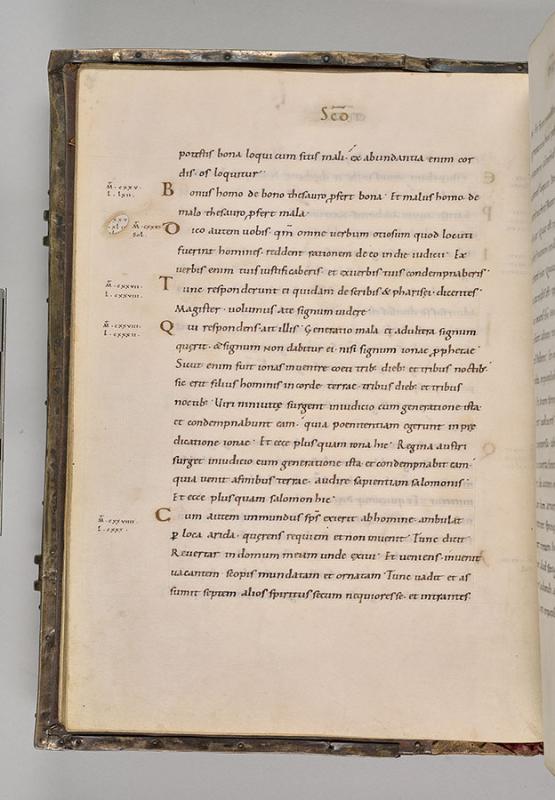 Scdo
potestis bona loqui cum sitis mali· ex abundantia enim cor
dis· os loquitur·
m̄· cxxv·
l· lxii·
B onus homo de bono thesauro ꝓfert bona· Et malus homo de
malo thesauro ꝓfert mala·
m̄· cxxvi
Sol·
D ico autem uobis· qm̄ omne uerbum otiosum quod locuti
fuerint homines· reddent rationem de eo in die iudicii· Ex
uerbis enim tuis iustificaberis· et ex uerbis tuis condempnaberis·
m̄· cxxvii·
l· cxxviii·
T unc responderunt ei quidam de scribis & pharisei· dicentes·
Magister· uolumus a te signum uidere·
m̄· cxxviii·
l· cxxxii·
Q ui respondens ait illis· Generatio mala et adultera signum
querit· & signum non dabitur ei· nisi signum ionae ꝓphetae·
Sicut enim fuit ionas in uentre coeti trib; dieb; et tribus noctib;
sic erit filius hominis in corde terrae· tribus dieb; et tribus
noctib; Uiri niniuitę surgent in iudicio cum generatione ista·
et condempnabunt eam· quia poenitentiam egerunt in prę
dicatione ionae· Et ecce plus quam iona hic· Regina austri
surget in iudicio cum generatione ista et condempnabit eam·
quia uenit a finibus terrae· audire sapientiam salomonis·
Et ecce plus quam salomon hic·
m̄· cxxviiii·
l· cxxx·
C um autem immundus sp̄s exierit ab homine· ambulat
ꝑ loca arida· querens requiem et non inuenit· Tunc dicit·
Reuertar in domum meam unde exiui· Et ueniens· inuenit
uacantem scopis mundatam et ornatam· Tunc uadit et as
sumit septem alios spiritus secum nequiores se· et intrantes